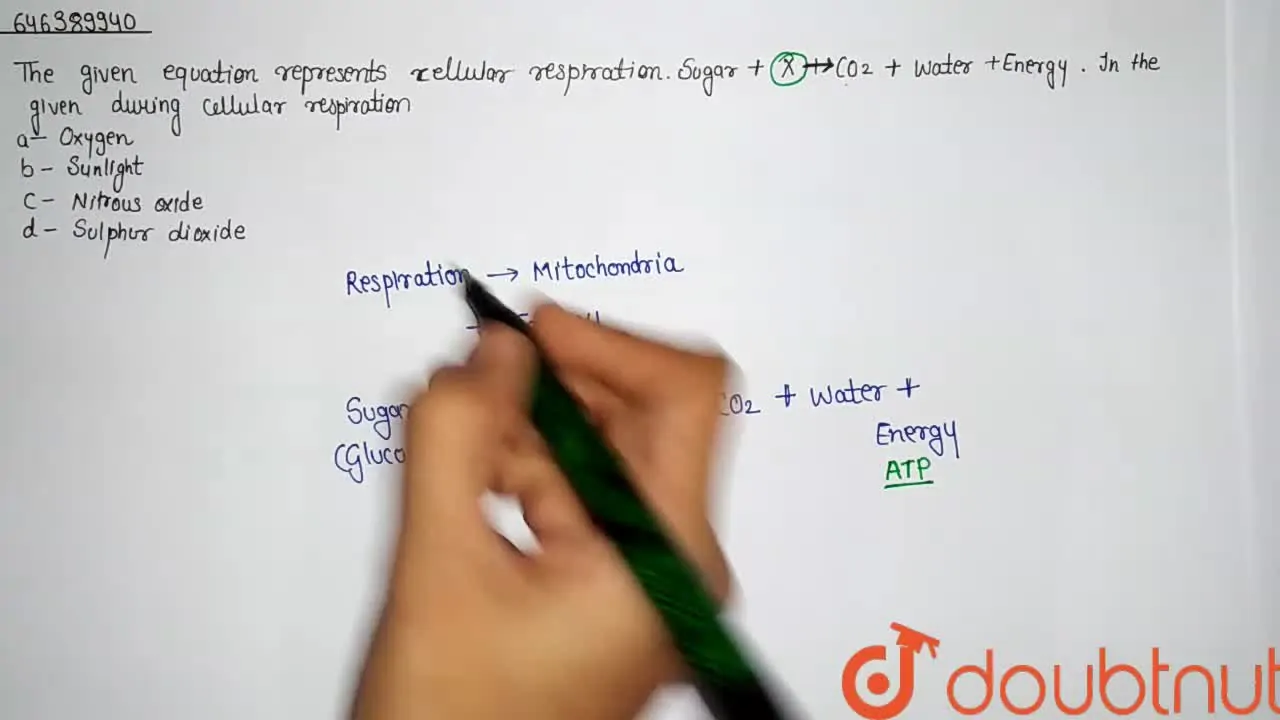 646389940
The given equation represents cellular respiration. Sugar + X → CO2 + Water + Energy. In the
given during cellular respiration
a- Oxygen
b- Sunlight
C- Nitrous oxide
d- Sulphur dioxide
Respiration → Mitochondria
Sugar CO2 + Water +
Energy
ATP
doubtnut